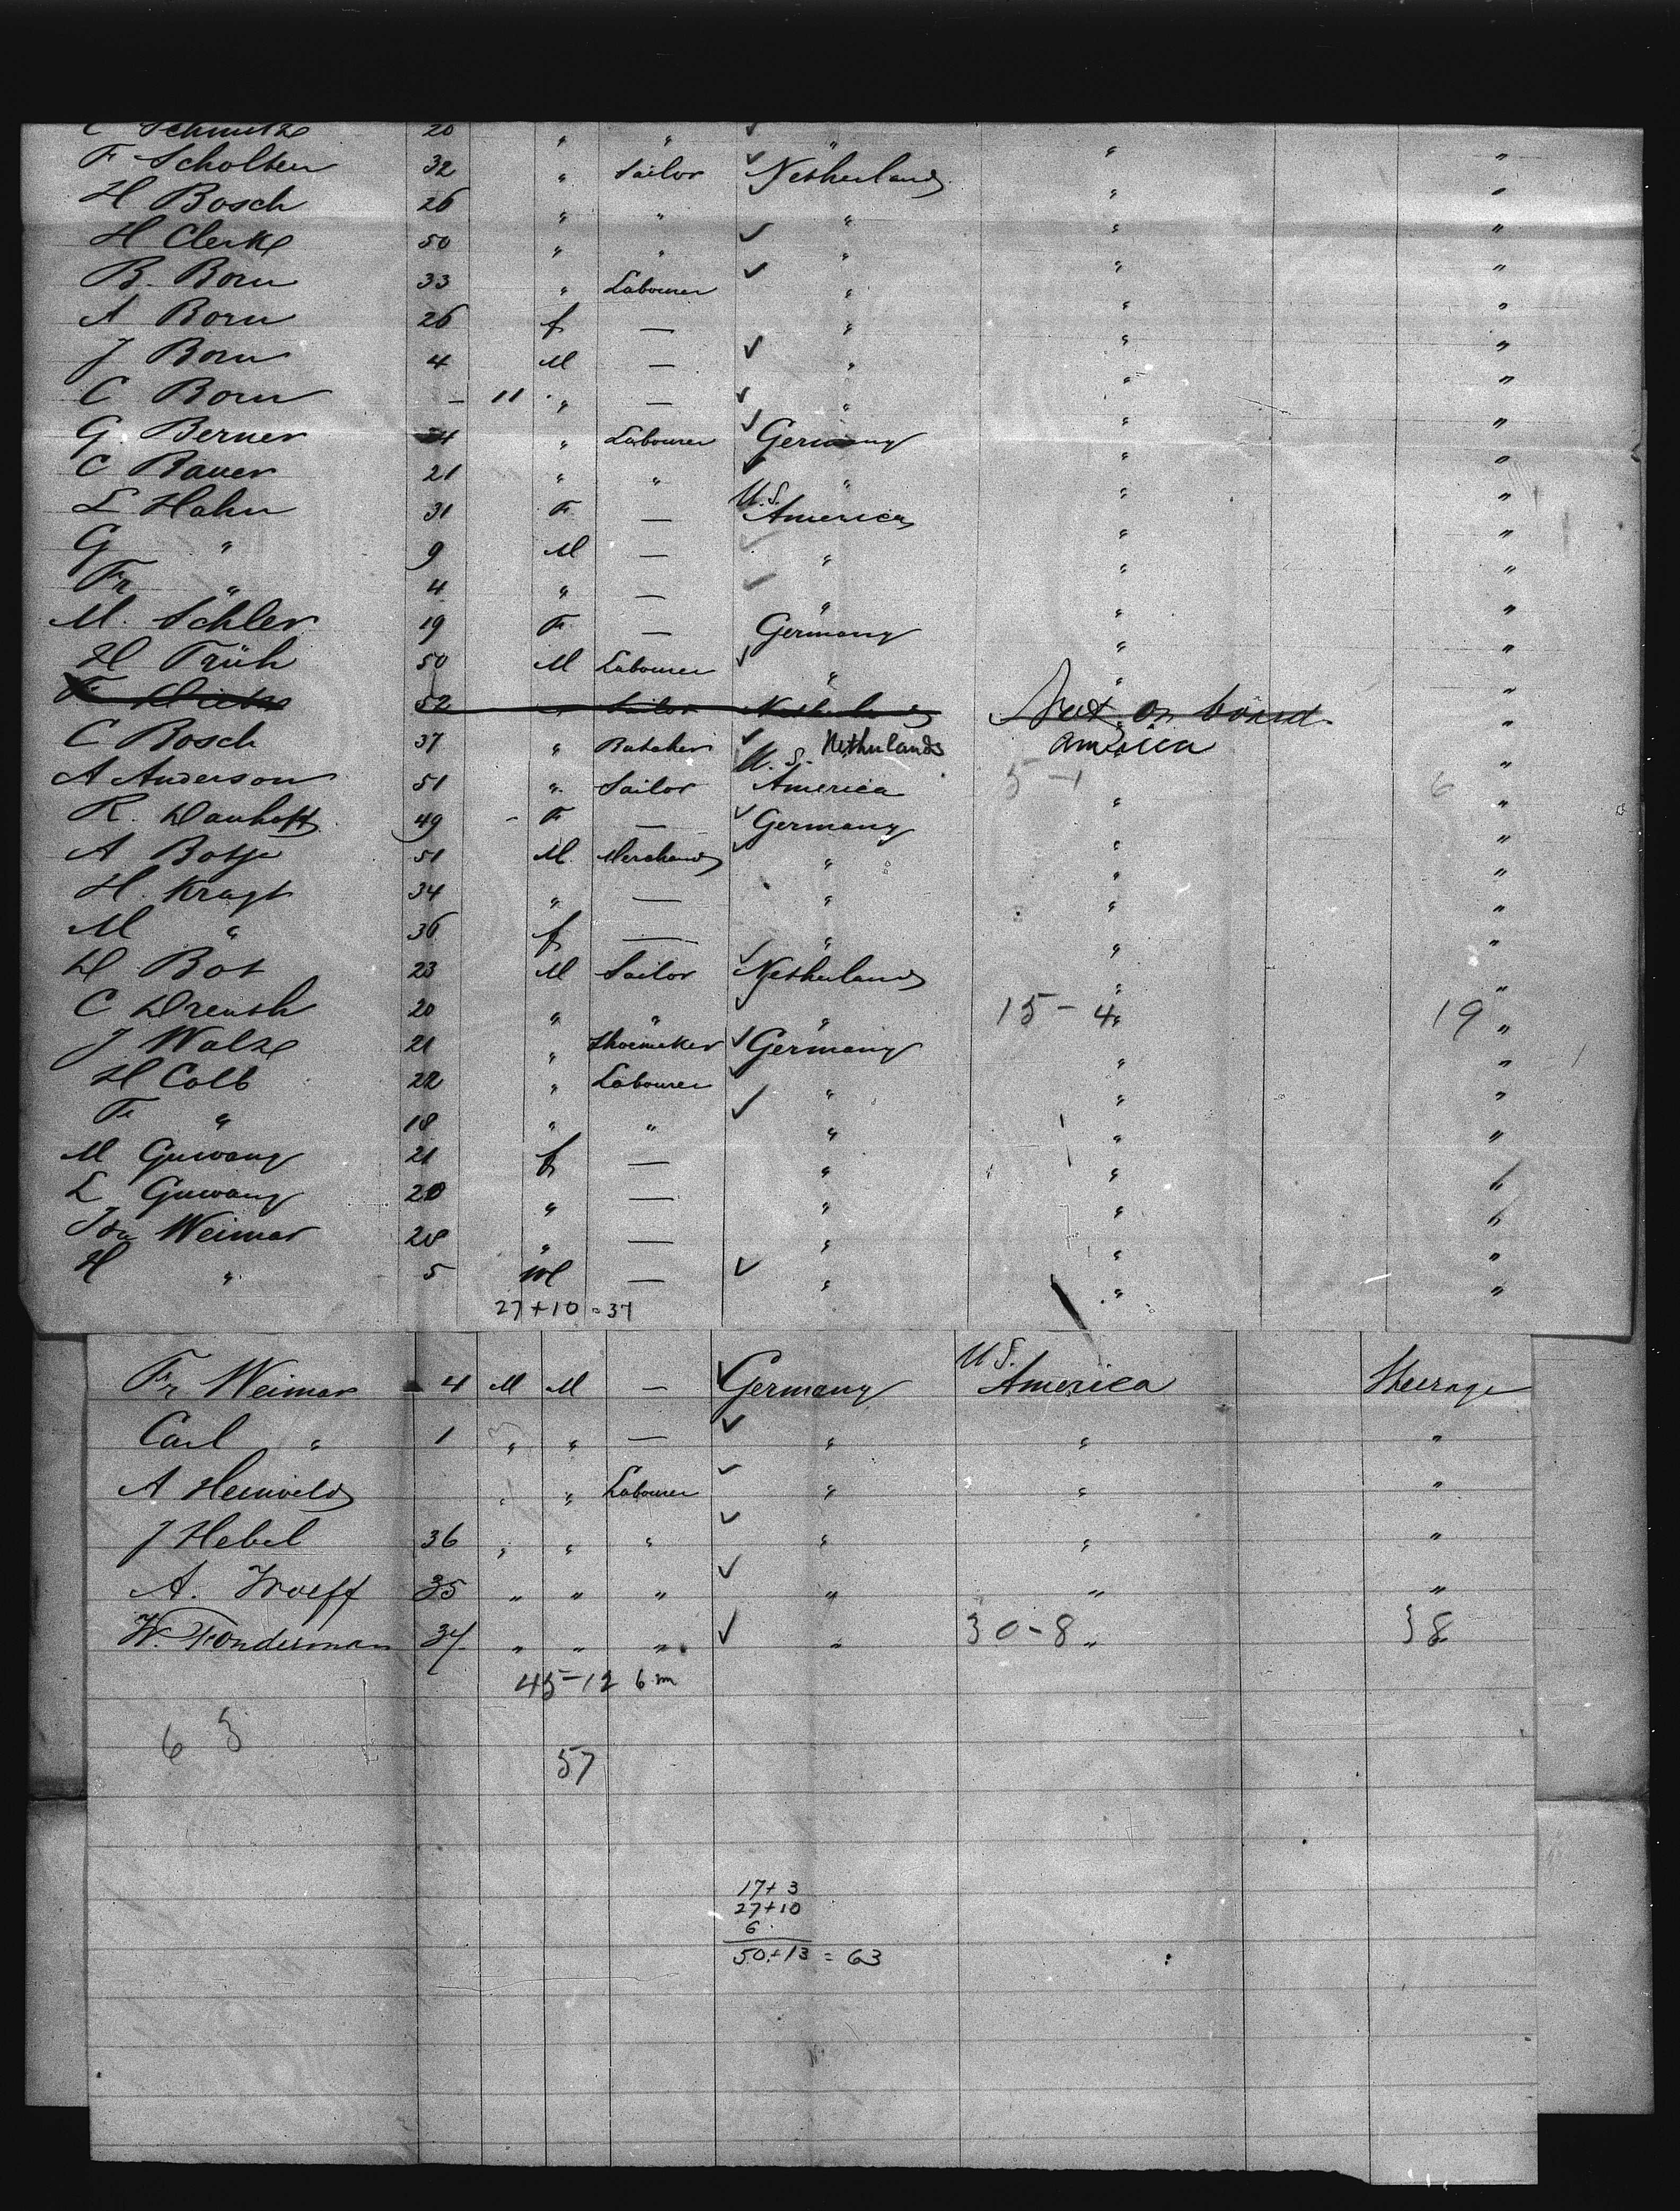 C Schmitz 20 " " ✓ " " "
F Scholten 32 " Sailor ✓ Netherlands " "
H Bosch 26 " " ✓ " " "
H Clerke 50 " " ✓ " " "
B. Born 33 " Labourer ✓ " " "
A Born 26 f — " " "
J Born 4 M — ✓ " " "
C Born — 11 " — ✓ " " "
G. Berner 24 " Labourer ✓ Germany " "
C Bauer 21 " " ✓ " " "
L Hahn 31 F — U.S. America " "
G " 9 M — ✓ " " "
Fr " 4 " — ✓ " " "
M. Schler 19 F — Germany " "
H Früh 50 M Labourer ✓ " " "
52 " Sailor Netherlands Not on board "
C Bosch 37 " Butcher ✓ Netherlands America "
A Anderson 51 " Sailor U.S. America 5-1 " 6 "
R. Danhoff 49 - F — ✓ Germany " "
A Botje 51 M. Merchand ✓ " " "
H. Kragt 34 " — " " "
M " 36 f — " " "
D Bot 23 M Sailor ✓ Netherlands " "
C Drenth 20 " " ✓ " 15-4 " 19 "
J Walze 21 " Shoemaker ✓ Germany " "
H Colb 22 " Labourer ✓ " " "
F " 18 " " ✓ " " "
M Guwang 21 f — " " "
L Guwang 20 " — " " "
Ida Weimar 28 " — " " "
H " 5 M — ✓ " " "
27+10=37
U S.
Fr Weimar 4 M M — ✓ Germany America Steerage
Carl " 1 " " — ✓ " " "
A Heinveld " " Labourer ✓ " " "
J Hebel 36 " " " ✓ " " "
A. Wolff 35 " " " ✓ " " "
W. Fonderman 34 " " " ✓ " 30-8 " 38
45-12 6 m
63
57
17+3
27+10
6
50+13=63